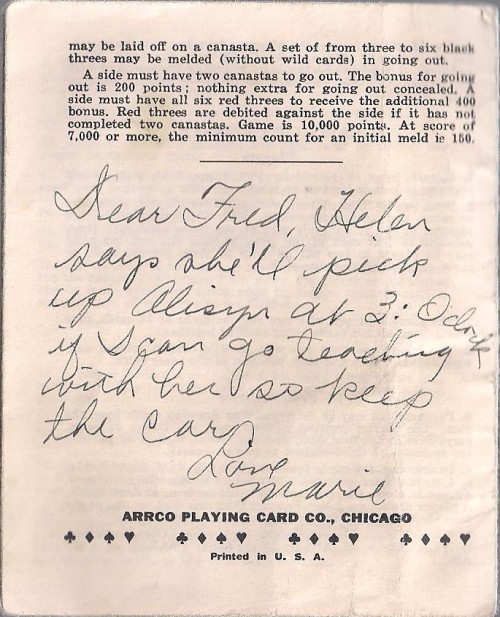 may be laid off on a canasta. A set of from three to six black
threes may be melded (without wild cards) in going out.
A side must have two canastas to go out. The bonus for going
out is 200 points; nothing extra for going out concealed. A
side must have all six red threes to receive the additional 400
bonus. Red threes are debited against the side if it has not
completed two canastas. Game is 10,000 points. At score of
7,000 or more, the minimum count for an initial meld is 150.
Dear Fred, Helen
says she'll pick
up Alisyn at 3: Oclock
if I can go teaching
with her so keep
the car
Love
Marie
ARRCO PLAYING CARD CO., CHICAGO
♦ ♣ ♦ ♠ ♥ ♣ ♦ ♠ ♥ ♣ ♦ ♠ ♥ ♣ ♦ ♠ ♥
Printed in U. S. A.